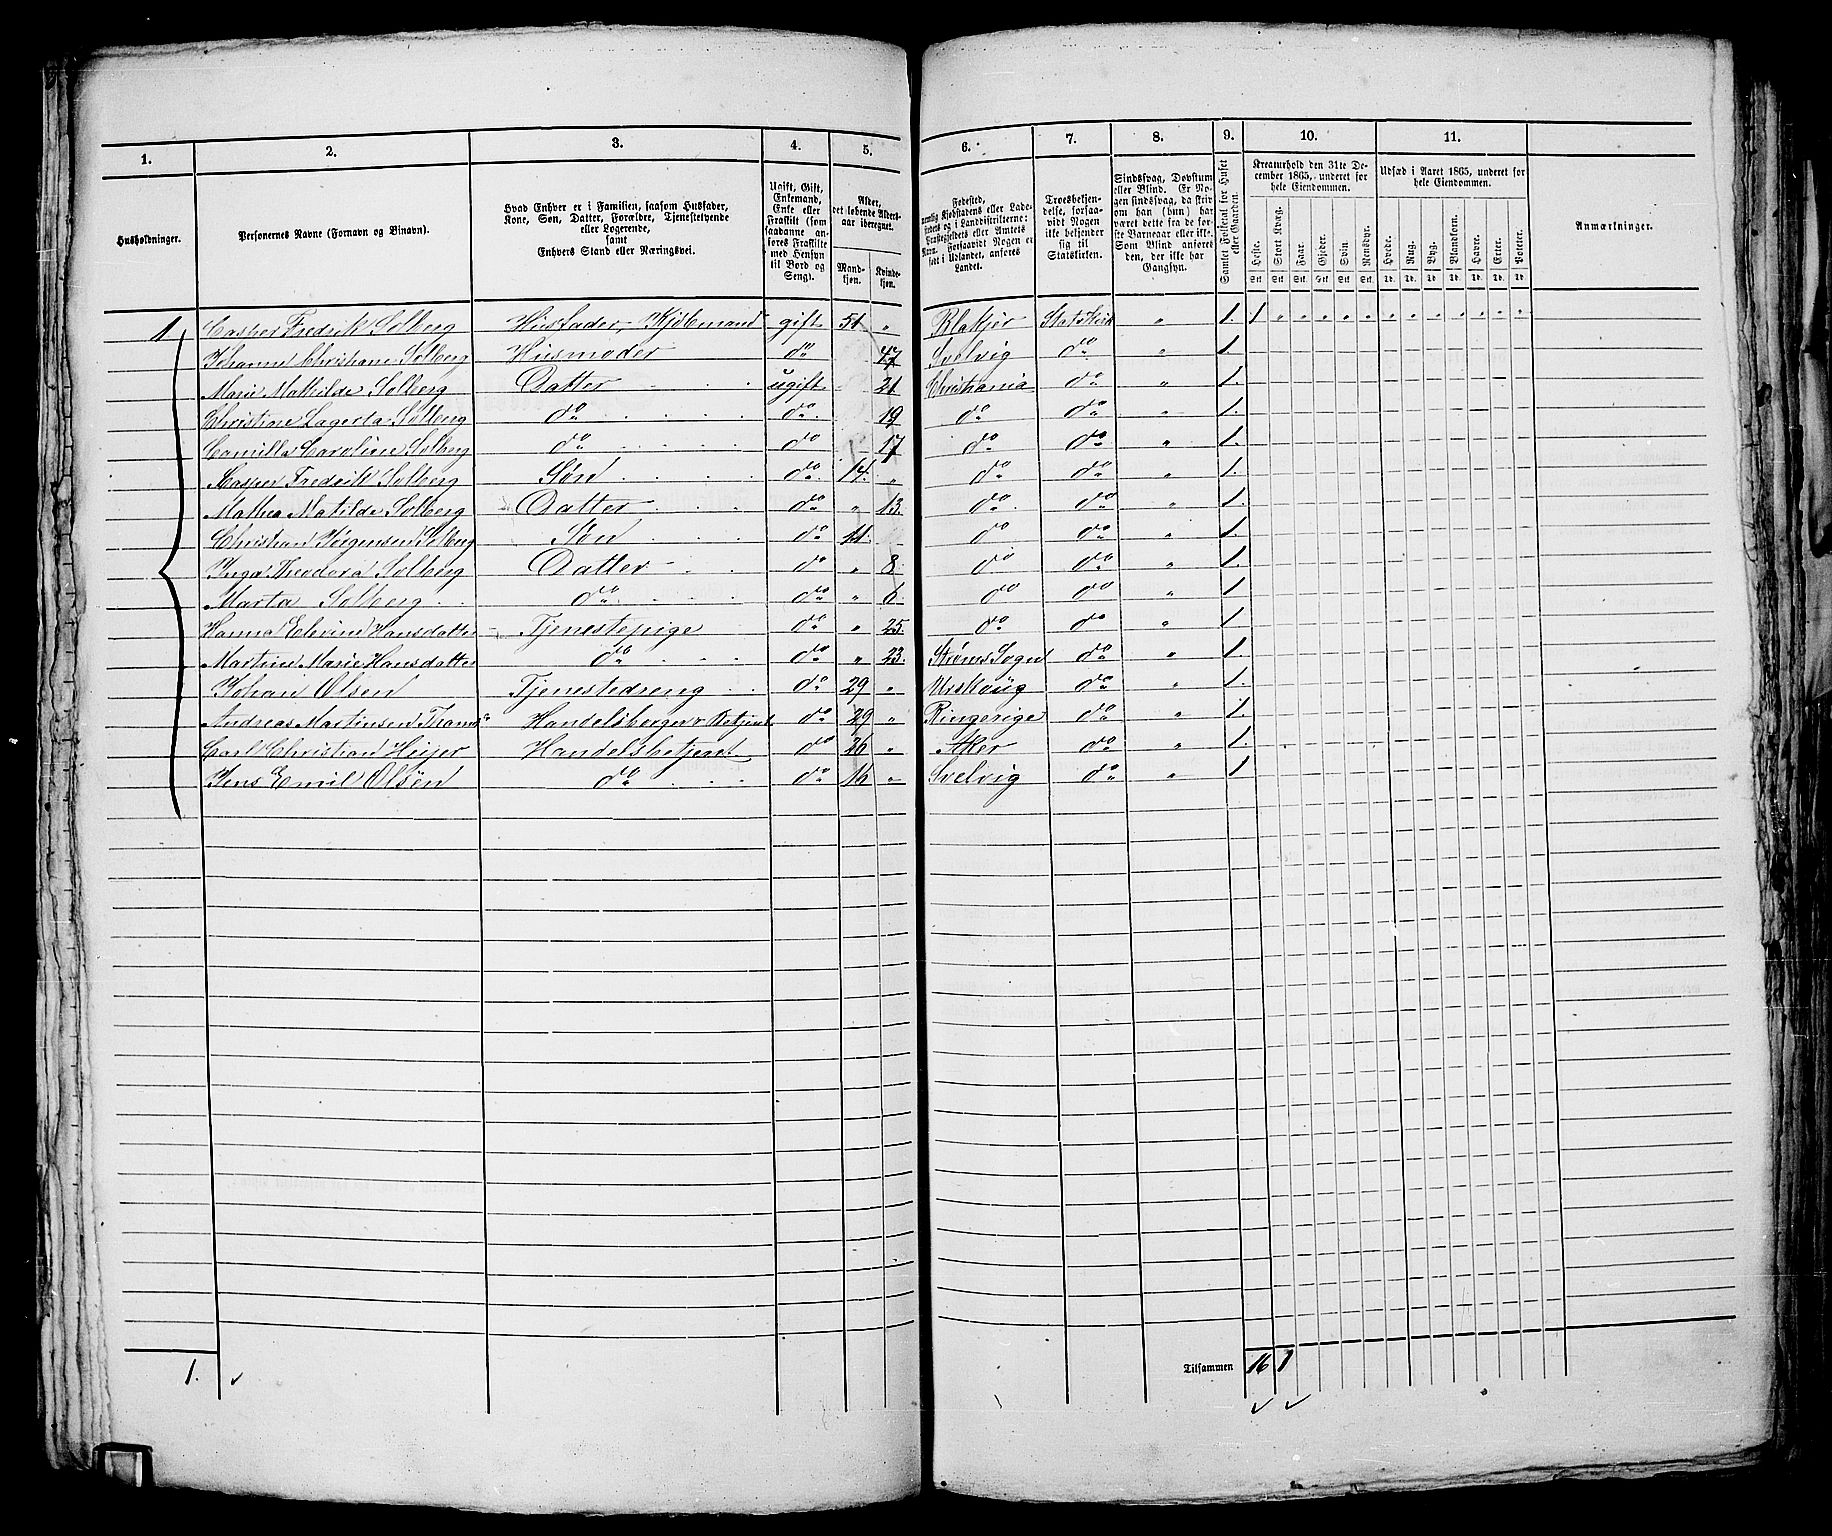 1. 2. 3. 4. 5. 6. 7. 8. 9. 10. 11.
Husholdninger.
Personernes Navne (Fornavn og Binavn).
Hvad Enhver er i Familien, saasom Husfader,
Kone, Søn, Datter, Forældre, Tjenestetyende
eller Logerende,
samt
Enhvers Stand eller Næringsvei.
Ugift, Gift,
Enkemand,
Enke eller
Fraskilt (som
saadanne an-
føres Fraskilte
med Hensyn
til Bord og
Seng).
Alder,
det løbende Alders-
aar iberegnet.
Mand-
kjøn.
Kvinde-
kjøn.
Fødested,
Kjøbstadens eller Lade-
og i Landdistrikterne:
eller Amtets
Forsaavidt Nogen er
født i Udlandet, anføres
Landet.
Troesbekjen-
delse, forsaa-
vidt Nogen
ikke bekjender
sig til
Statskirken.
Sindssvag, Døvstum
eller Blind. Er No-
gen sindssvag, da skri-
om han (hun) har
været dette fra de før-
ste Barneaar eller ikke.
Som Blind anføres
den, der ikke har
Gangsyn.
Samlet Folketal for Huset
eller Gaarden.
Kreaturhold den 31te De-
cember 1865, underet for
hele Eiendommen.
Heste. Stort Kvæg. Faar. Gjeder. Svin. Rensdyr.
Stk. Stk. Stk. Stk. Stk. Stk.
Udsæd i Aaret 1865, underet for
hele Eiendommen.
Hvede. Rug. Byg. Blandkorn. Havre. Erter. Poteter.
Td. Td. Td. Td. Td. Td. Td.
Anmærkninger.
1 Casper Fredrik Solberg Husfader, Kjøbmand gift 51 " Blakjer Statskirk " 1. 1 " " " " " " " " " " " "
Johanne Christiane Solberg Husmoder do 47 Svelvig do " 1.
Marie Mathilde Solberg Datter ugift 21 Christiania do " 1.
Christine Lagerta Solberg do do 19 do do " 1.
Camilla Caroline Solberg do do 17 do do " 1.
Casper Fredrik Solberg Søn do 14. " do do " 1.
Mathea Matilde Solberg Datter do " 13. do do " 1.
Christian Jørgensen Solberg Søn do 11. do do " 1.
Inga Theodora Solberg Datter do " 8. do do " 1
Marta Solberg do do " 6. do do " 1
Hanna Hansdatter Tjenestepige do " 25. do do " 1
Martine Marie Hansdatter do do " 23. Strøms Sogn do " 1.
Johan Olsen Tjenestedreng do 29 " Urskoug do " 1.
Andreas Martinsen do 29 " Ringerige do " 1.
Carl Christian Heijer Handelsbetjent do 26 " Aker do " 1.
Jens Emil Olsøn do do 16 " Svelvig do " 1
1. Tilsammen 16 1